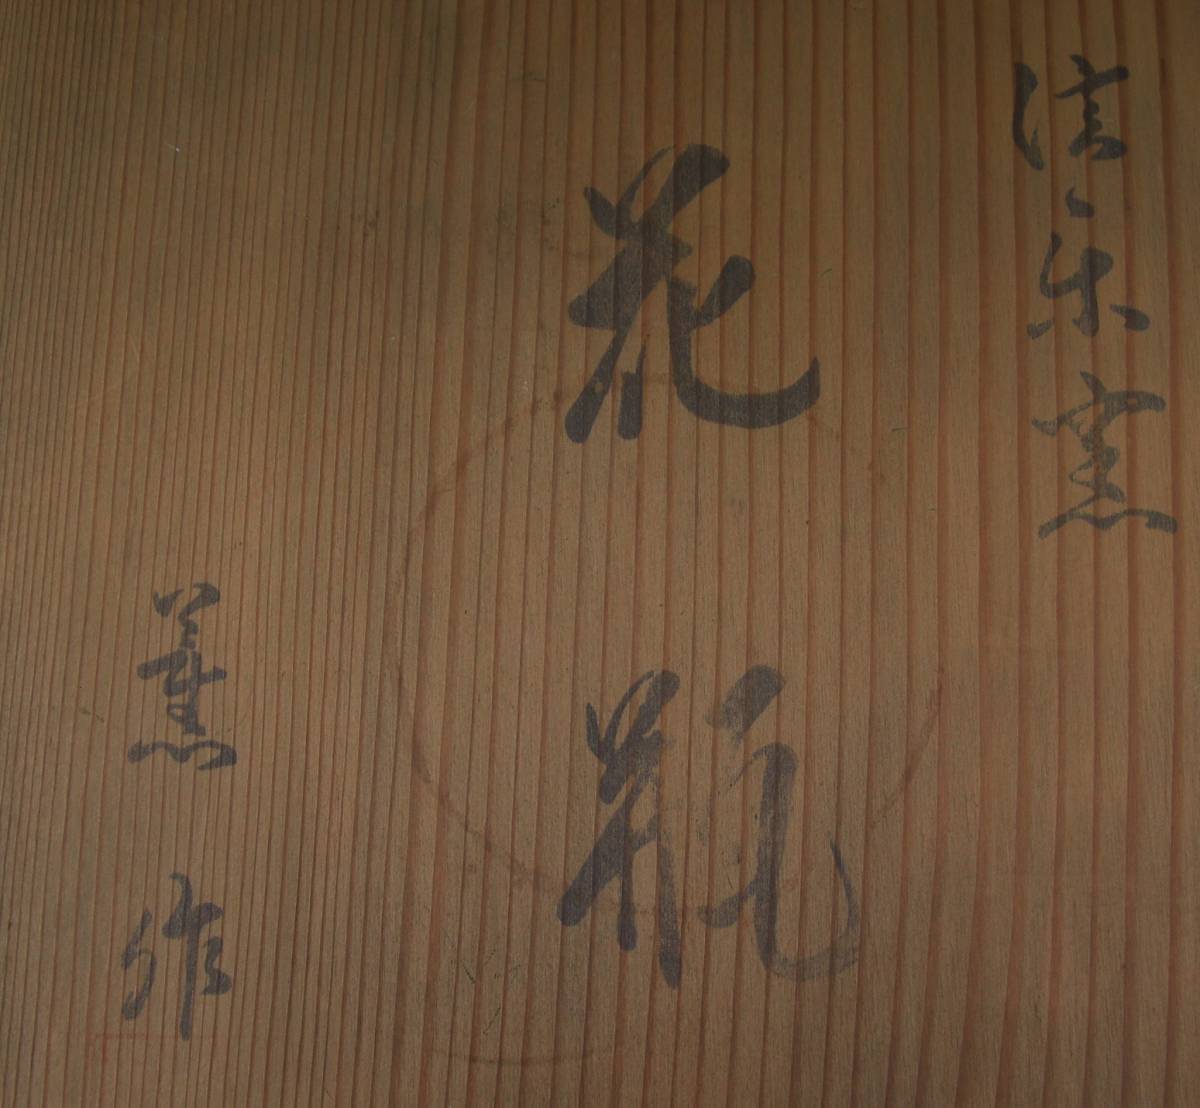 信楽窯
花瓶
薫作